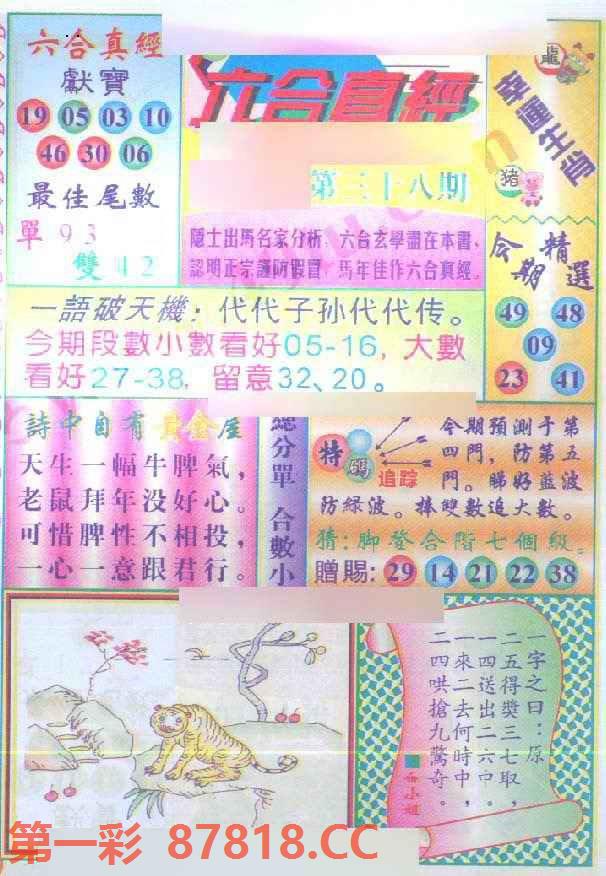 六合真經
獻寶
19 05 03 10
46 30 06
最佳尾數
單 93
雙 42
六合真經
第三十八期
隱士出馬名家分析，六合玄學盡在本書、
認明正宗謹防假冒，馬年佳作六合真經。
龍
幸運生肖
豬
今期精選
49 48
09
23 41
一語破天機：代代子孙代代传。
今期段數小數看好05-16，大數
看好27-38，留意32、20。
詩中自有黃金屋
天生一幅牛脾氣，
老鼠拜年没好心。
可惜脾性不相投，
一心一意跟君行。
總分單 合數小
特碼
追踪
今期預測于第
四門，防第五
門。睇好藍波
防綠波。捧雙數追大數。
猜：脚登合階七個級。
贈賜：29 14 21 22 38
一字之曰：原
二五得獎三七取，
一四送出二六中。
一來二去何時中，
二四哄搶九驚奇。
小姐
第一彩 87818.CC